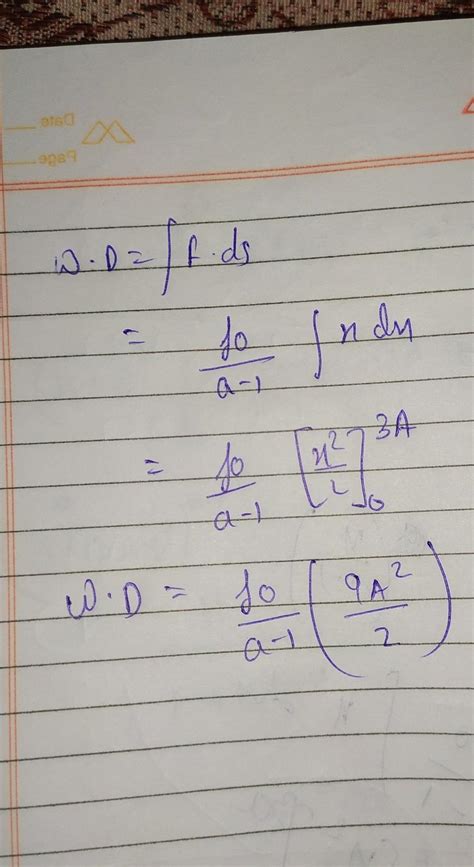 Date
Page
W.D = ∫ f. ds
= f0/a-1 ∫ x dx
= f0/a-1 [x²/2]₀^3A
W.D = f0/a-1 (9A²/2)